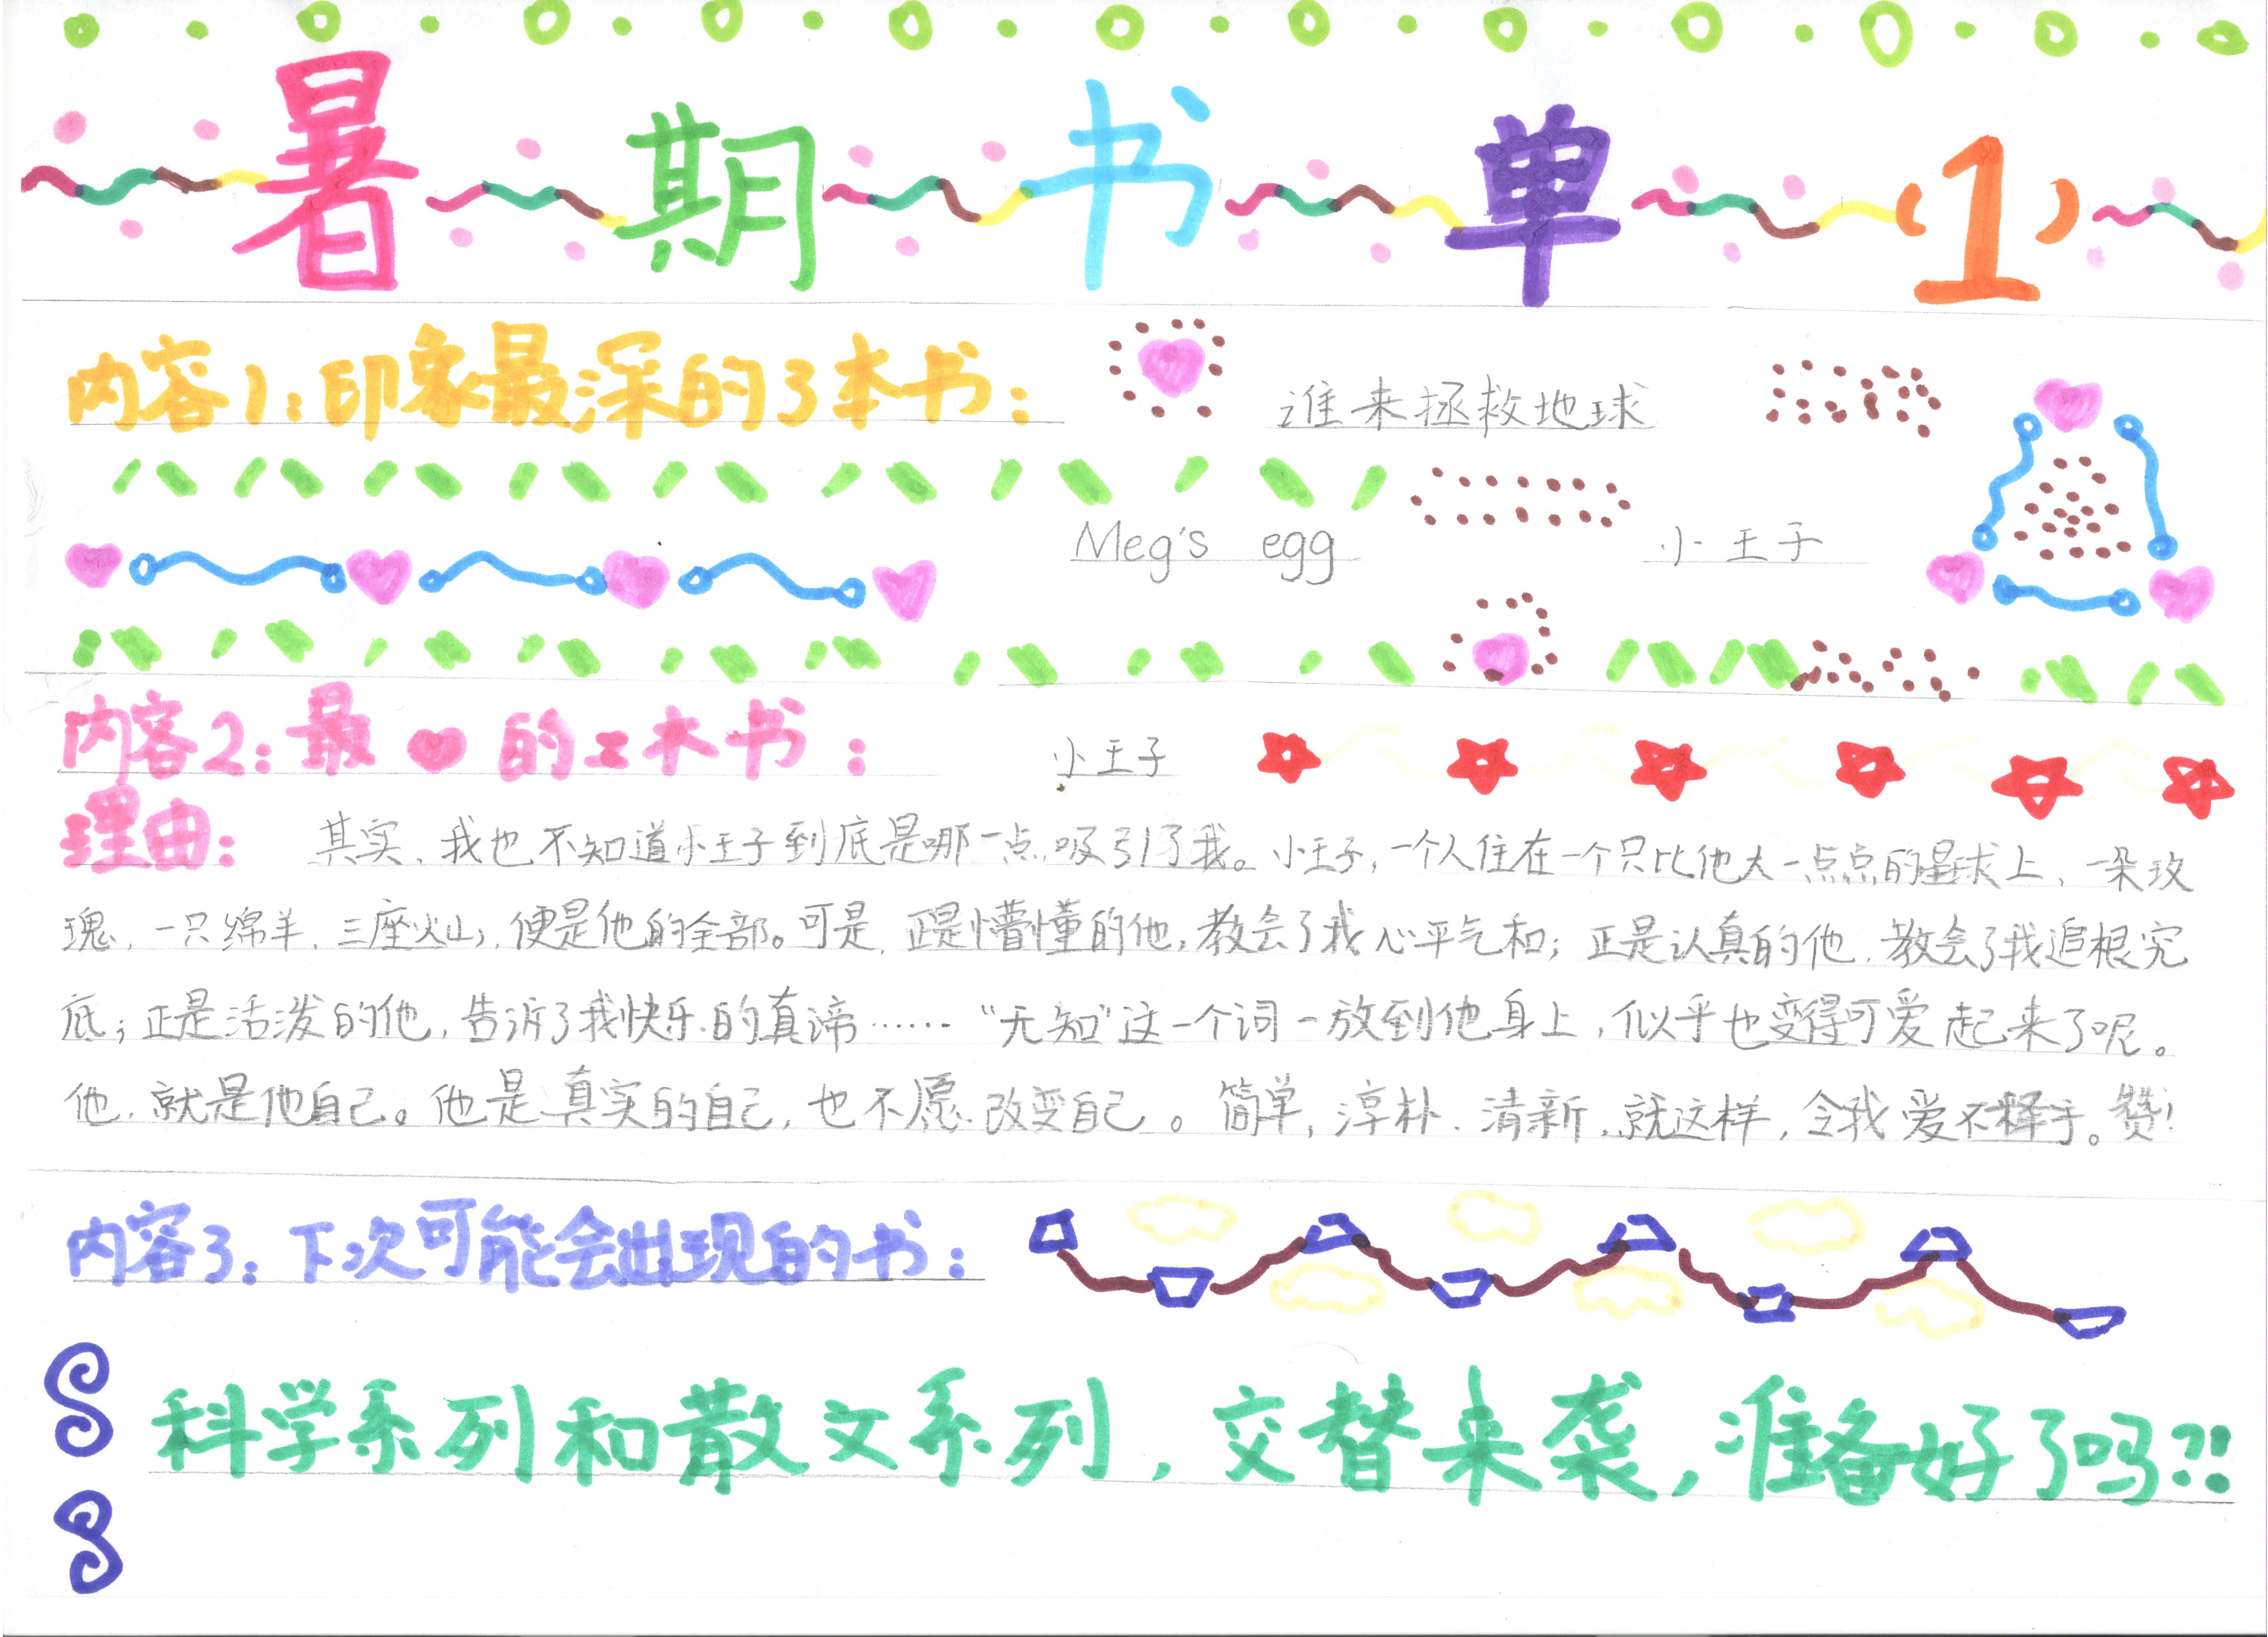 暑期书单(1)
内容1:印象最深的3本书:
谁来拯救地球
Meg's egg
小王子
内容2:最♥的工本书:
小王子
理由:
其实,我也不知道小王子到底是哪一点吸引了我。小王子,一个人住在一个只比他大一点点的星球上,一朵玫
瑰,一只绵羊,三座火山,便是他的全部。可是,正是懵懂的他,教会了我心平气和;正是认真的他,教会了我追根究
底;正是活泼的他,告诉了我快乐的真谛……“无知”这一个词一放到他身上,似乎也变得可爱起来了呢。
他,就是他自己。他是真实的自己,也不愿改变自己。简单,淳朴,清新,就这样,令我爱不释手。赞!
内容3:下次可能会出现的书:
科学系列和散文系列,交替来袭,准备好了吗?!!